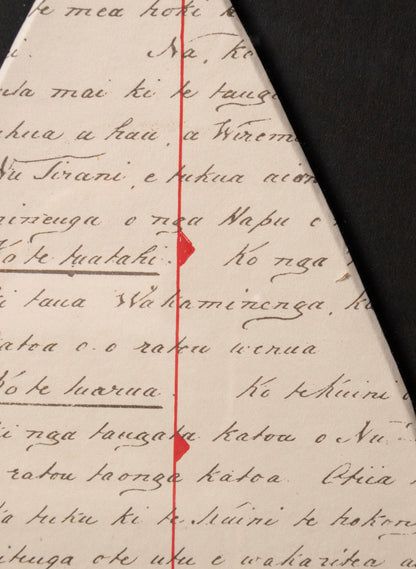 te mea hoki k
i. Na, ko
mai ki te tanga
ukua a hau, a Wirem
Nu Tirani, e tukua aian
minenga o nga Hapu o
Ko te tuatahi. Ko nga
ki taua Wakaminenga, ku
katoa o o ratou wenua
Ko te tuarua. Ko te Kuini o
ki nga tangata katoa o Nu
ratou taonga katoa. Otiia
ka tuku ki te Kuini te hokon
itenga ote utu e wakaritea a